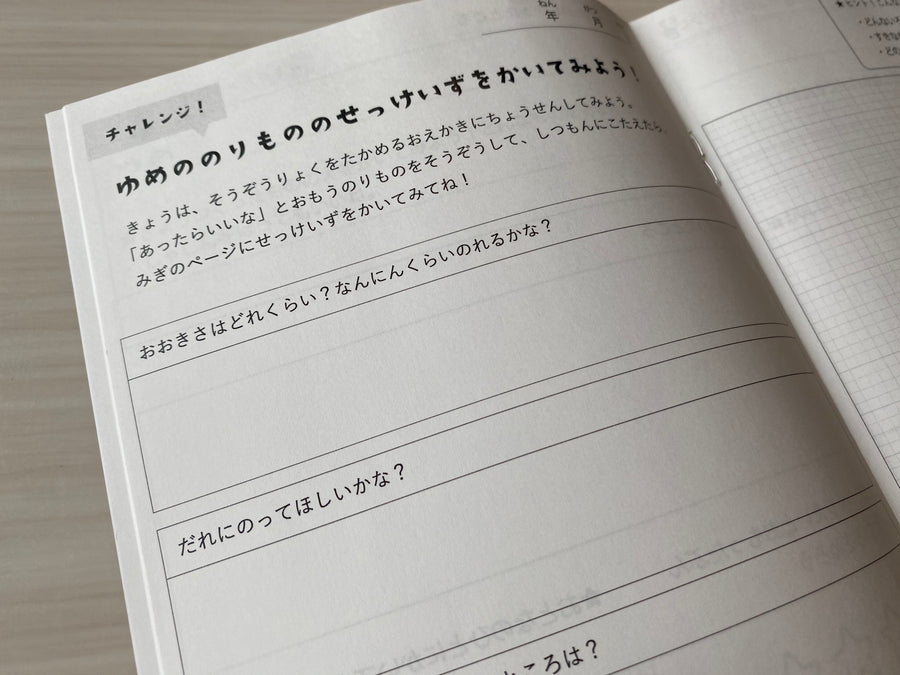 ねん がつ
年 月
チャレンジ！
ゆめののりもののせっけいずをかいてみよう！
きょうは、そうぞうりょくをたかめるおえかきにちょうせんしてみよう。
「あったらいいな」とおもうのりものをそうぞうして、しつもんにこたえたら、
みぎのページにせっけいずをかいてみてね！
おおきさはどれくらい？なんにんくらいのれるかな？
だれにのってほしいかな？
ころは？
★ヒント！どんな
・どんない
・すきな
・どの